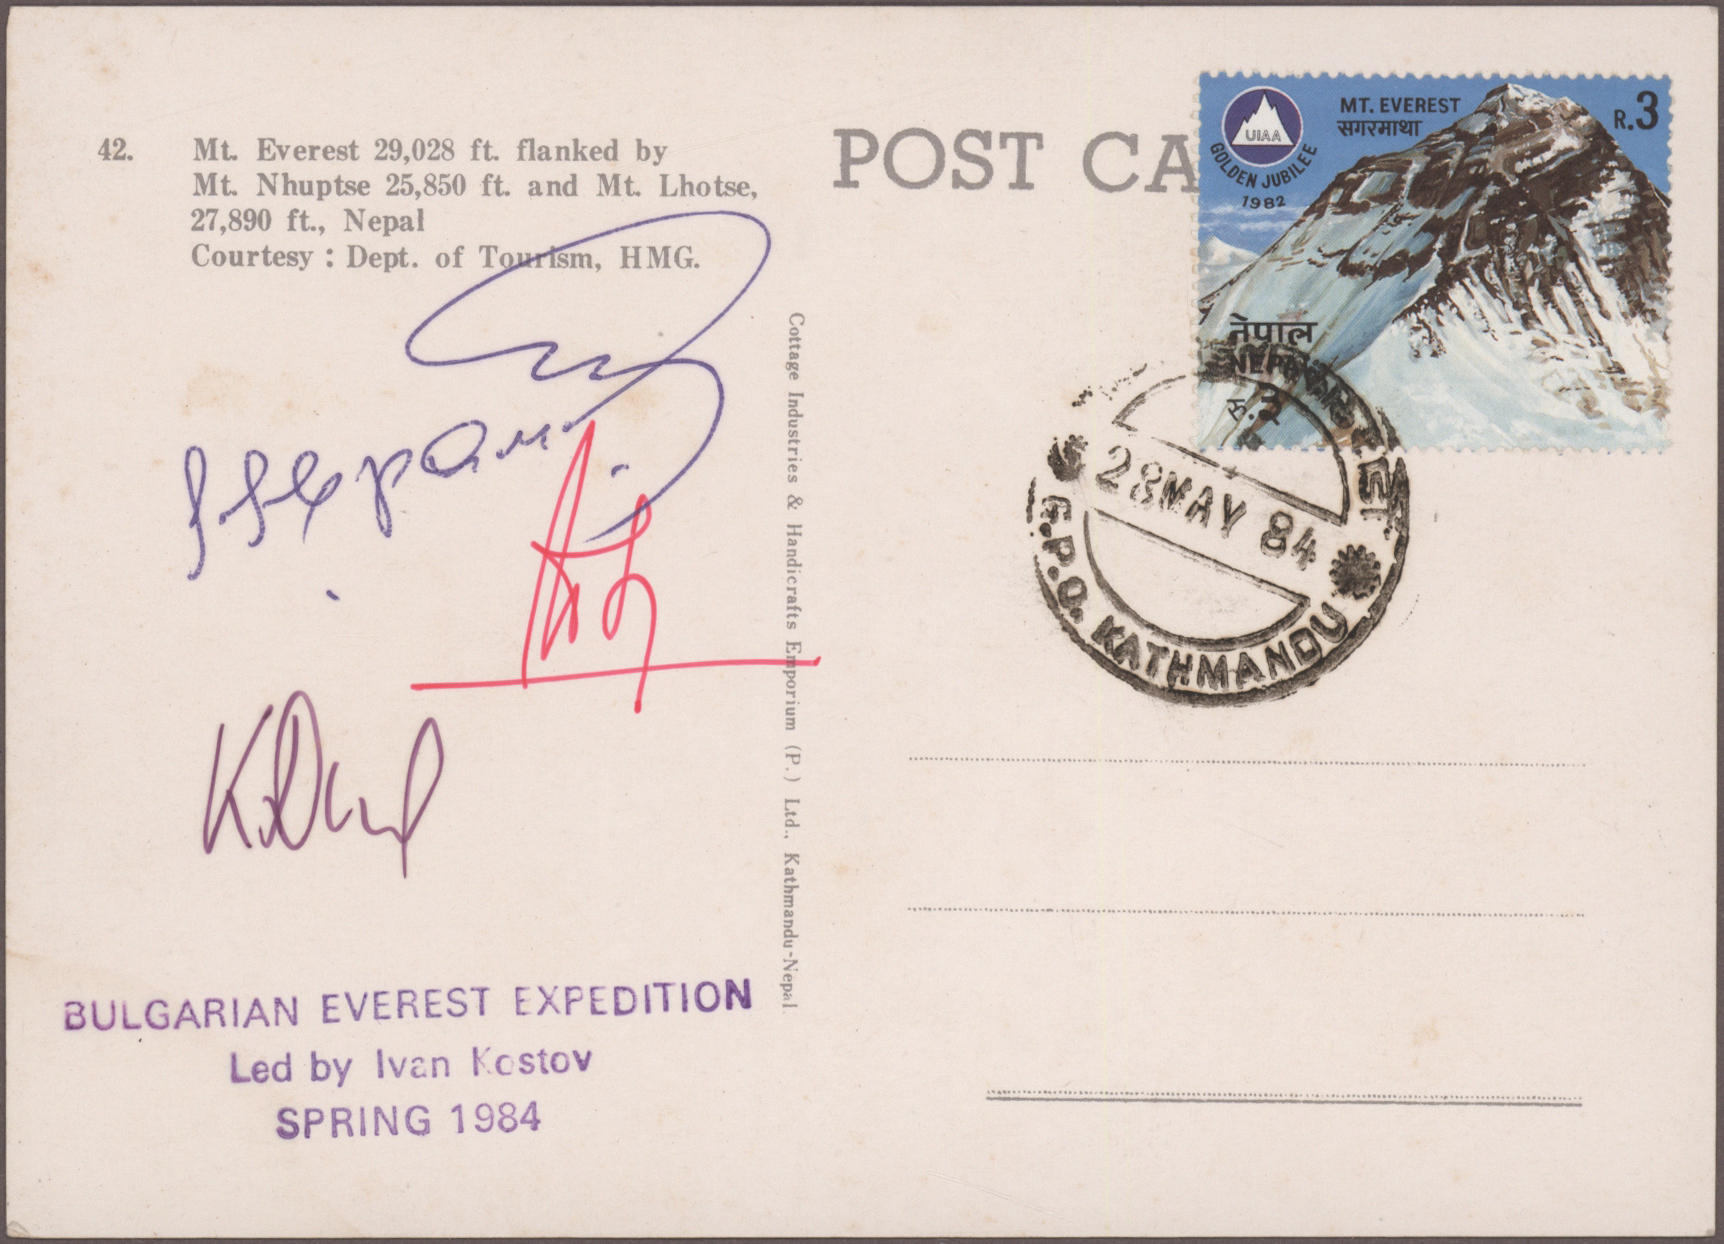 42. Mt. Everest 29,028 ft. flanked by
Mt. Nhuptse 25,850 ft. and Mt. Lhotse,
27,890 ft., Nepal
Courtesy : Dept. of Tourism, HMG.
POST CA
UIAA
GOLDEN JUBILEE
1982
MT. EVEREST
सगरमाथा
R.3
नेपाल
NEPAL
रु.3
28 MAY 84
G.P.O. KATHMANDU
Cottage Industries & Handicrafts Emporium (P.) Ltd., Kathmandu-Nepal.
BULGARIAN EVEREST EXPEDITION
Led by Ivan Kostov
SPRING 1984